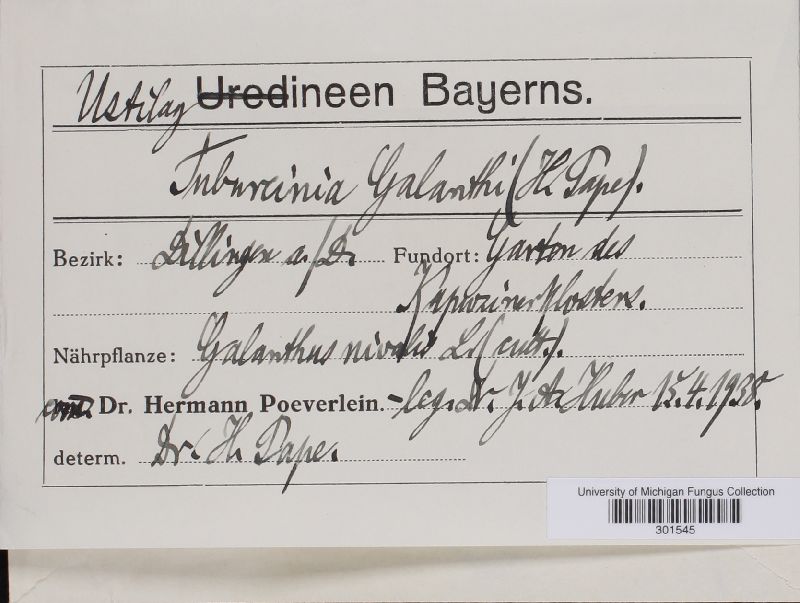 Ustilagineen Bayerns.
Tuburcinia Galanthi (H. Pape).
Bezirk: Dillingen a./D. Fundort: Garten des
Kapuzinerklosters.
Nährpflanze: Galanthus nivalis L. (cult.).
Dr. Hermann Poeverlein. - leg. Dr. J. A. Huber 15.4.1938.
determ. Dr. H. Pape.
University of Michigan Fungus Collection
301545